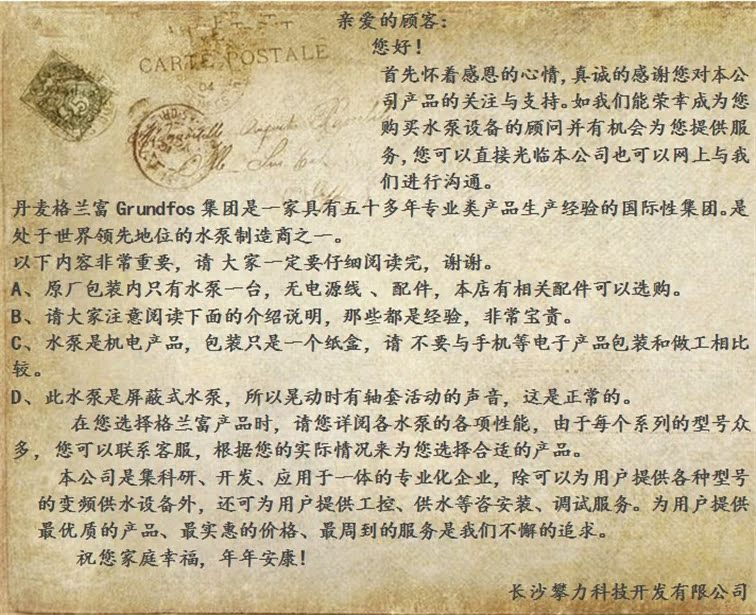 亲爱的顾客:
您好!
CARTE POSTALE
首先怀着感恩的心情,真诚的感谢您对本公
司产品的关注与支持。如我们能荣幸成为您
购买水泵设备的顾问并有机会为您提供服
务,您可以直接光临本公司也可以网上与我
们进行沟通。
丹麦格兰富 Grundfos 集团是一家具有五十多年专业类产品生产经验的国际性集团。是
处于世界领先地位的水泵制造商之一。
以下内容非常重要, 请 大家一定要仔细阅读完, 谢谢。
A、 原厂包装内只有水泵一台, 无电源线 、 配件, 本店有相关配件可以选购。
B、 请大家注意阅读下面的介绍说明, 那些都是经验, 非常宝贵。
C、 水泵是机电产品, 包装只是一个纸盒, 请 不要与手机等电子产品包装和做工相比
较。
D、 此水泵是屏蔽式水泵, 所以晃动时有轴套活动的声音, 这是正常的。
在您选择格兰富产品时, 请您详阅各水泵的各项性能, 由于每个系列的型号众
多, 您可以联系客服, 根据您的实际情况来为您选择合适的产品。
本公司是集科研、开发、应用于一体的专业化企业, 除可以为用户提供各种型号
的变频供水设备外, 还可为用户提供工控、供水等咨安装、调试服务。为用户提供
最优质的产品、最实惠的价格、最周到的服务是我们不懈的追求。
祝您家庭幸福, 年年安康!
长沙攀力科技开发有限公司